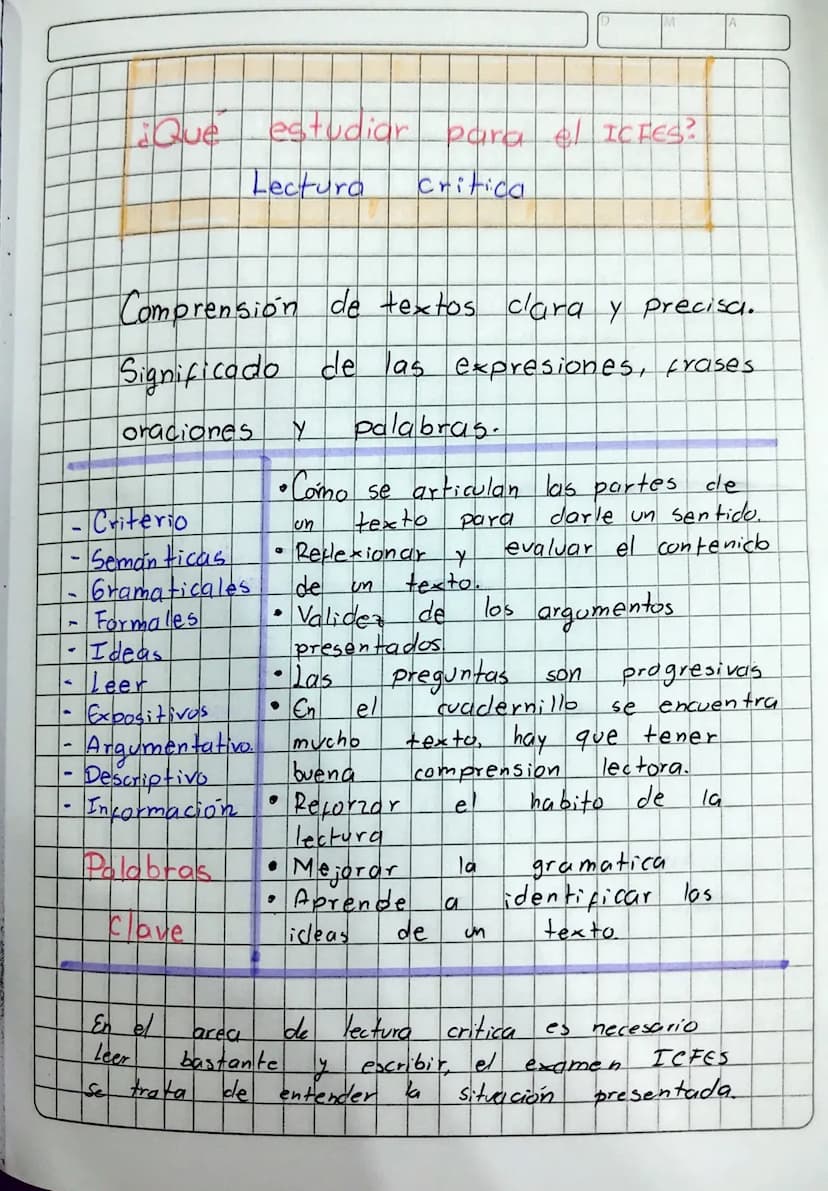 D M A
¿Qué estudiar para el ICFES?
Lectura critica
Comprensión de textos clara y precisa.
Significado de las expresiones, frases
oraciones y palabras.
- Criterio
- Semánticas
- Gramaticales
- Formales
- Ideas
- Leer
- Expositivos
- Argumentativo.
- Descriptivo
- Información
Palabras
Clave
• Cómo se articulan las partes de
un texto para darle un sentido.
• Reflexionar y evaluar el contenido
de un texto.
• Validez de los argumentos
presentados.
• Las preguntas son progresivas
• En el cuadernillo se encuentra
mucho texto, hay que tener
buena comprension lectora.
• Reforzar el habito de la
lectura
• Mejorar la gramatica
• Aprende a identificar las
ideas de un texto.
En el area de lectura critica es necesario
Leer bastante y escribir, el examen ICFES
se trata de entender la situación presentada.